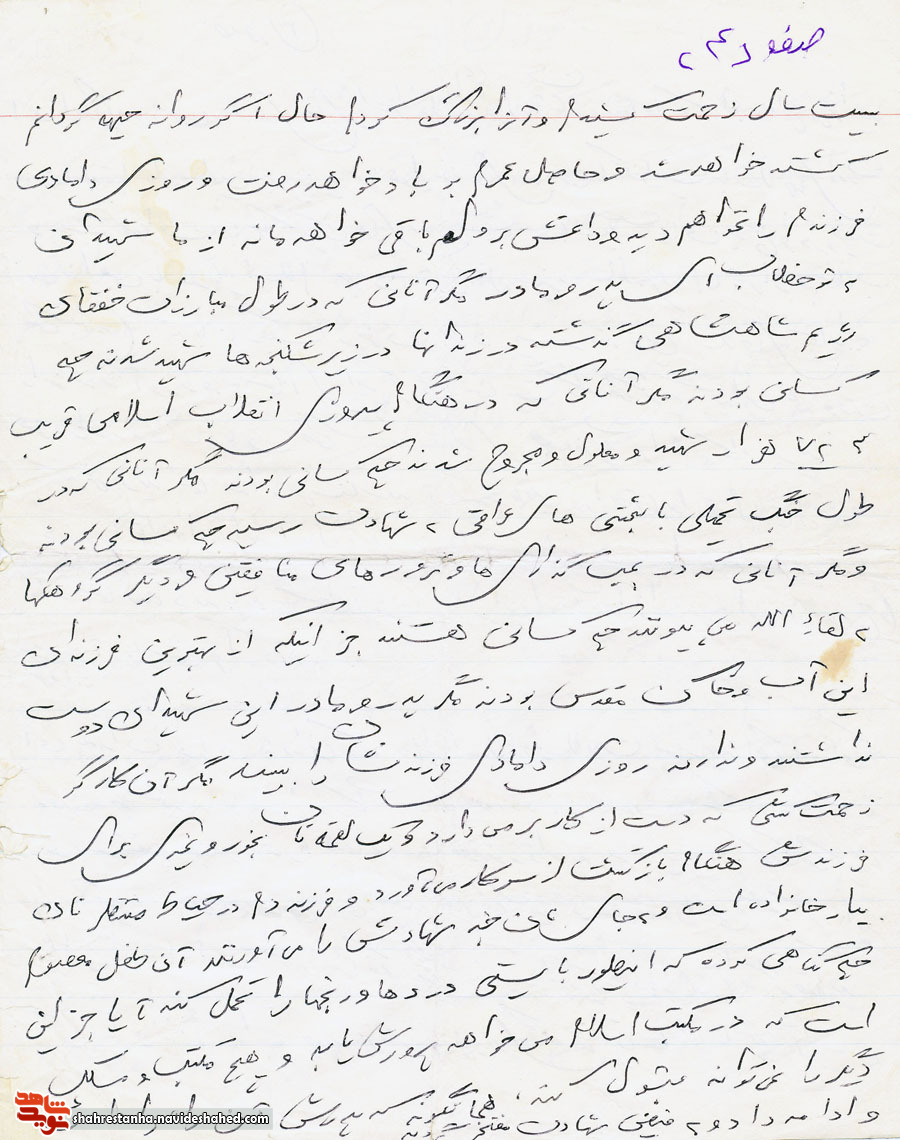 صفحه ۲
بیست سال زحمت کشیدم و آنرا بزرگ کردم حال اگر روانه جبهه گردانم
کشته خواهد شد و حاصل عمرم بر باد خواهد رفت و روزی دامادی
فرزندم را نخواهم دید و داغش بر دلم باقی خواهد ماند از ما شهیدان
به تو خطاب ای پدر و مادر مگر آنانی که در طول مبارزات خفقان
رژیم شاهنشاهی گذشته در زندانها در زیر شکنجه ها شهید شدند چه
کسانی بودند مگر آنانی که در هنگام پیروزی انقلاب اسلامی قریب
هزار شهید و معلول و مجروح شدند چه کسانی بودند مگر آنانی که در
طول جنگ تحمیلی با بعثی های عراقی به شهادت رسید چه کسانی بودند
و مگر آنانی که در بمب گذاری ها و ترورهای منافقین و دیگر گروهکها
به لقاء الله می پیوندند چه کسانی هستند جز اینکه از بهترین فرزندان
این آب و خاک مقدس بودند مگر پدر و مادر این شهیدان دوست
نداشتند و ندارند روزی دامادی فرزندشان را ببینند مگر آن کارگر
زحمت کشی که دست از کار بر می دارد و یک لقمه نان بخور و نمیری برای
فرزندش هنگام بازگشت از سر کار می آورد و فرزند هم در حیاط منتظر نان
بیار خانواده است و به جای نان خبر شهادتش را می آورند آن طفل معصوم
چه گناهی کرده که اینطور بایستی دردها و رنجها را تحمل کند آیا جز این
است که در مکتب اسلام می خواهد پرورش یابد و هیچ مکتب و مسلک
دیگر را نمی تواند قبول کند همانگونه که پدرش
و ادامه داد و به فیض شهادت مفتخر
شاهد
نوید
shahrestanha.navideshahed.com